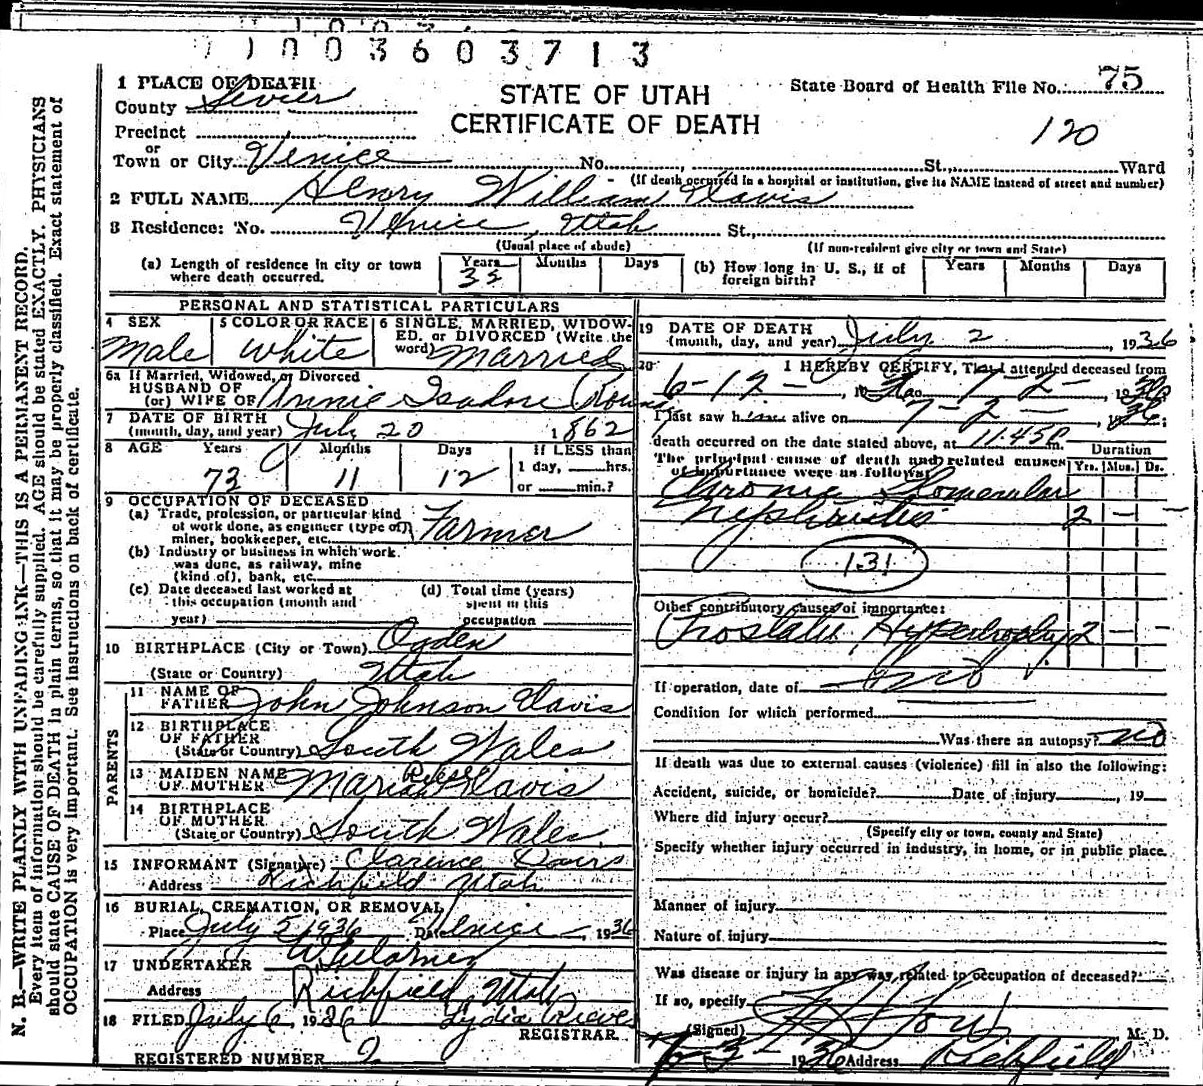 1003603713
1 PLACE OF DEATH
County Sevier
STATE OF UTAH
CERTIFICATE OF DEATH
State Board of Health File No. 75
120
Precinct
or
Town or City Venice No. , St., Ward
(If death occurred in a hospital or institution, give its NAME instead of street and number)
2 FULL NAME Henry William Davis
3 Residence: No. Venice, Utah St.,
(Usual place of abode) (If non-resident give city or town and State)
(a) Length of residence in city or town where death occurred. Years Months Days
(b) How long in U. S., if of foreign birth? Years Months Days
PERSONAL AND STATISTICAL PARTICULARS
4 SEX
Male
5 COLOR OR RACE
White
6 SINGLE, MARRIED, WIDOW-
ED, or DIVORCED (Write the
word) Married
6a If Married, Widowed, or Divorced
HUSBAND OF
(or) WIFE OF Annie Isadore
7 DATE OF BIRTH
(month, day, and year) July 20 1862
8 AGE Years Months Days If LESS than
1 day, hrs.
73 11 12 or min.?
9 OCCUPATION OF DECEASED
(a) Trade, profession, or particular kind
of work done, as engineer (type of),
miner, bookkeeper, etc. Farmer
(b) Industry or business in which work
was done, as railway, mine
(kind of), bank, etc.
(c) Date deceased last worked at
this occupation (month and
year)
(d) Total time (years)
spent in this
occupation
10 BIRTHPLACE (City or Town) Ogden
(State or Country) Utah
PARENTS
11 NAME OF
FATHER John Johnson Davis
12 BIRTHPLACE
OF FATHER
(State or Country) South Wales
13 MAIDEN NAME
OF MOTHER Maria Reese Davis
14 BIRTHPLACE
OF MOTHER
(State or Country) South Wales
15 INFORMANT (Signature) Clarence Davis
Address Richfield Utah
16 BURIAL, CREMATION, OR REMOVAL
Place July 5 1936 Date Venice, 1936
17 UNDERTAKER
Address Richfield, Utah
18 FILED July 6, 1936 Lydia Reeves
REGISTRAR
REGISTERED NUMBER 2
19 DATE OF DEATH
(month, day, and year) July 2, 1936
20 I HEREBY CERTIFY, That I attended deceased from
6-12- to 7-2- 1936
I last saw him alive on 7-2-, 1936;
death occurred on the date stated above, at 11.45 P m.
The principal cause of death and related causes
of importance were as follows:
Duration
Yrs. Mos. Ds.
Chronic Glomerular
Nephritis 2 - -
131
Other contributory causes of importance:
Prostatic Hypertrophy 2 - -
If operation, date of no
Condition for which performed
Was there an autopsy? no
If death was due to external causes (violence) fill in also the following:
Accident, suicide, or homicide? Date of injury , 19
Where did injury occur?
(Specify city or town, county and State)
Specify whether injury occurred in industry, in home, or in public place.
Manner of injury
Nature of injury
Was disease or injury in any way related to occupation of deceased?
If so, specify
(Signed) M. D.
3- 1936 Address Richfield
N. B.—WRITE PLAINLY WITH UNFADING INK—THIS IS A PERMANENT RECORD.
Every item of information should be carefully supplied. AGE should be stated EXACTLY. PHYSICIANS
should state CAUSE OF DEATH in plain terms, so that it may be properly classified. Exact statement of
OCCUPATION is very important. See instructions on back of certificate.